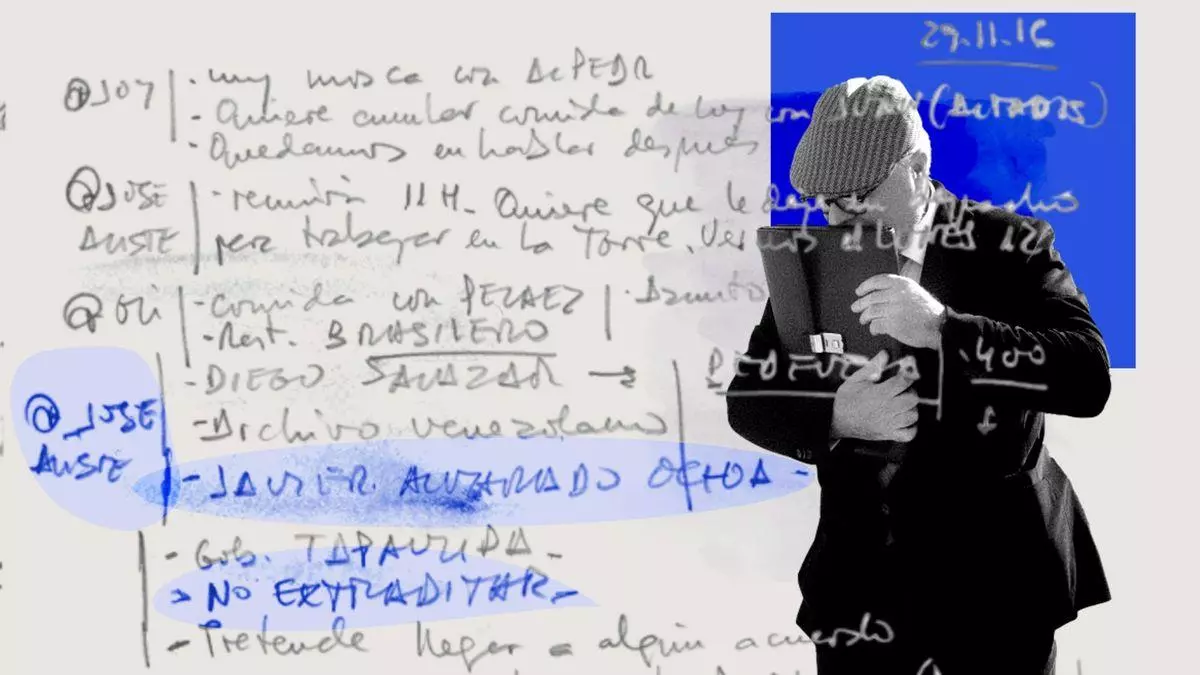 29.11.16
@JOY · muy mosca con AcPEDR
· Quiere anular comida de hoy con JUAN (ACTADAS)
· Quedamos en hablar después
@JOSE · reunión 11 H. Quiere que le deje un despacho
ALISTE para trabajar en la Torre. Vernos el LUNES 12
· Comida con PELAEZ · Asunto
· Rest. BRASILERO
- DIEGO SALAZAR → PEDEVESA · 400
@_JOSE - Archivo venezolano
ALISTE - JAVIER ALVARADO OCHOA -
- Gob. TAPAUZIPA -
> NO EXTRADITAR -
- Pretende llegar a algún acuerdo